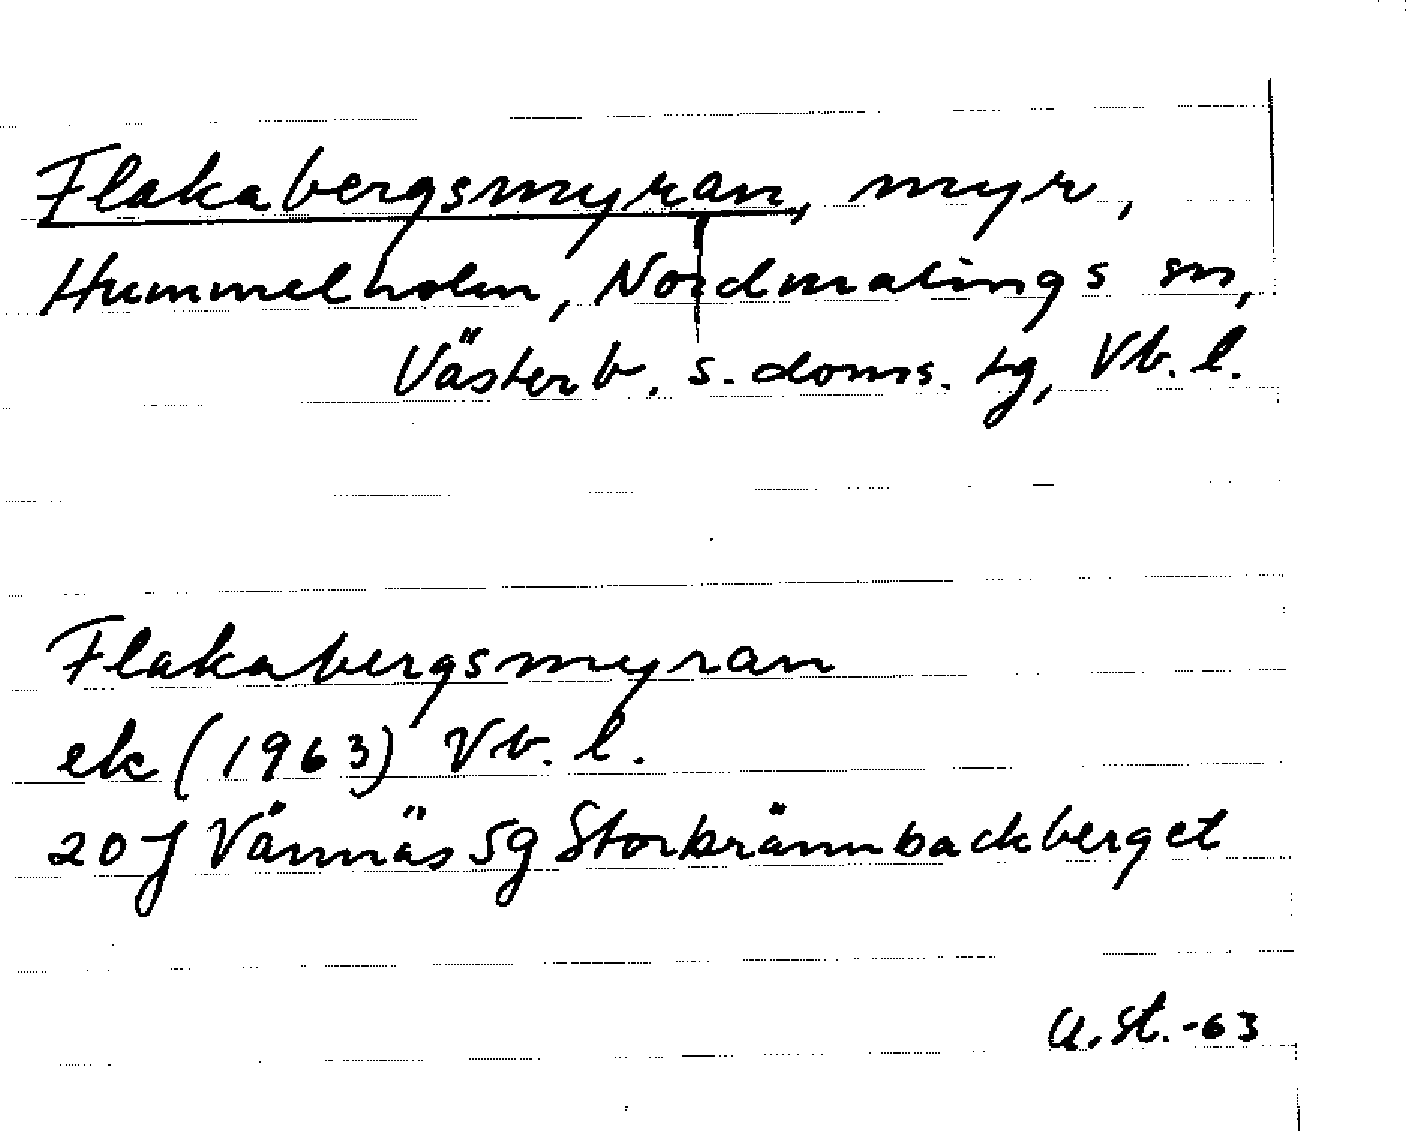 Flakabergsmyran, myr,
Hummelholm, Nordmalings sn,
Västerb. s. doms. tg, Vb. l.
Flakabergsmyran
ek (1963) Vb. l.
20 J Vännäs 5g Storbrännbackberget
U. St. -63